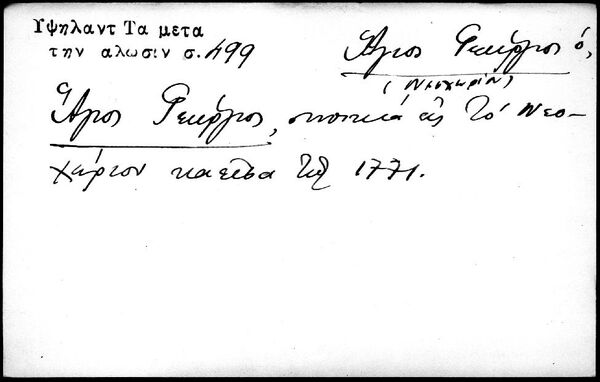 Υψηλαντ Τα μετα
την αλωσιν σ. 499
Άγιος Γεώργιος ὁ,
(Νεοχωρίου)
Ἅγιος Γεώργιος, εἰς τὸ Νεο-
χώριον καεῖσα τῷ 1771.